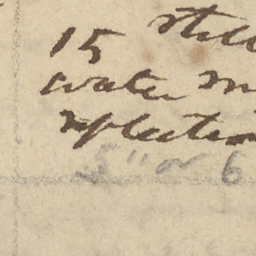 15 still
water m
reflection
5" or 6